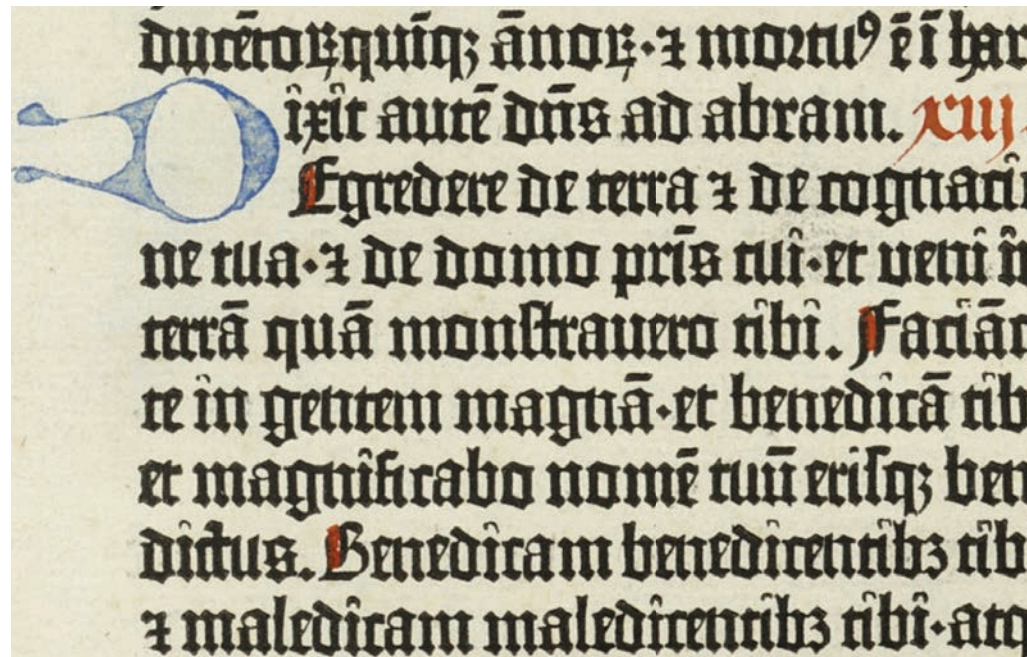 ducētoꝝ quīqꝫ ānoꝝ·⁊ mortuꝰ ē ī har
Dixit autē dn̄s ad abram. xiij
Egredere de terra ⁊ de cognaci
ne tua·⁊ de domo pr̄is tui·et ueni in
terrā quā monstrauero tibi. Faciāq
te in gentem magnā·et benedicā tib
et magnificabo nomē tuū erisqꝫ ben
dictus. Benedicam benedicentibꝫ tib
⁊ maledicam maledicentibꝫ tibi·atq